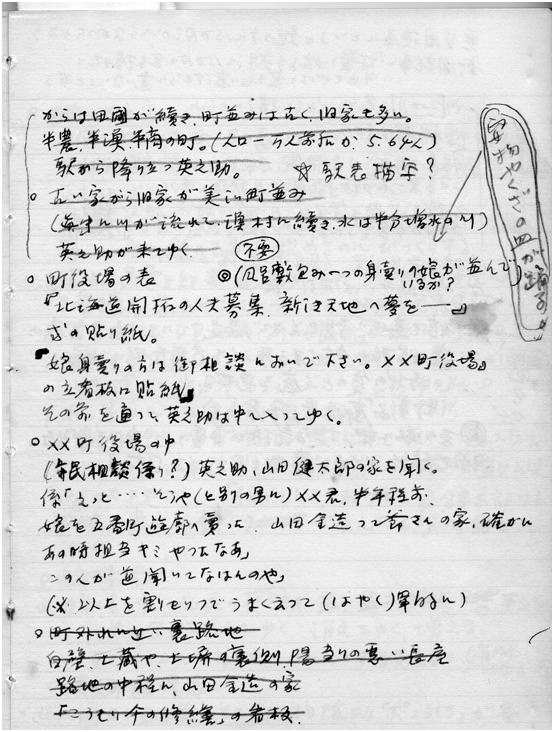 からは田園が続き、町並みは古く、旧家も多い。
半農、半漁、半商の町。(人口一万人前后か、5.6千人)
駅から降り立つ英之助。 ☆駅表描写?
○古い家から旧家が美しい町並み
(海岸に川が流れて、漁村に続き、水は半分塩水の川)
英之助が来てゆく。
不要
○町役場の表 ◎(風呂敷包み一つの身売りの娘が並んでいるか?
『北海道開拓の人夫募集、新法天地へ夢を――』
式の貼り紙。
『娘身売りの方は御相談においで下さい。××町役場』
の立看板に貼紙』
その前を通って英之助は中へ入ってゆく。
○××町役場の中
(住民相談係り?)英之助、山田健太郎の家を聞く。
係「えっと……そうや(と別の男に)××君、半年程前、
娘を五番町遊廓へ売った、山田金造って爺さんの家、確か
あの時担当キミやったなあ」
この人が道聞いてなはんのや」
(※以上を割セリフでうまく云って(はやく)
○町外れに近い裏路地
白壁、土蔵や、土塀の裏側、陽当りの悪い長屋
路地の中程に、山田金造の家
「こうもり傘の修繕」の看板。